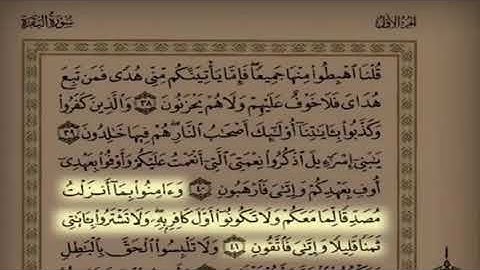 سُورَةُ البَقَرَةِ
الجُزءُ الأوّلُ
قُلْنَا ٱهْبِطُوا۟ مِنْهَا جَمِيعًا ۖ فَإِمَّا يَأْتِيَنَّكُم مِّنِّى هُدًى فَمَن تَبِعَ
هُدَاىَ فَلَا خَوْفٌ عَلَيْهِمْ وَلَا هُمْ يَحْزَنُونَ ٣٨ وَٱلَّذِينَ كَفَرُوا۟
وَكَذَّبُوا۟ بِـَٔايَـٰتِنَآ أُو۟لَـٰٓئِكَ أَصْحَـٰبُ ٱلنَّارِ ۖ هُمْ فِيهَا خَـٰلِدُونَ ٣٩
يَـٰبَنِىٓ إِسْرَٰٓءِيلَ ٱذْكُرُوا۟ نِعْمَتِىَ ٱلَّتِىٓ أَنْعَمْتُ عَلَيْكُمْ وَأَوْفُوا۟ بِعَهْدِىٓ
أُوفِ بِعَهْدِكُمْ وَإِيَّـٰىَ فَٱرْهَبُونِ ٤٠ وَءَامِنُوا۟ بِمَآ أَنزَلْتُ
مُصَدِّقًا لِّمَا مَعَكُمْ وَلَا تَكُونُوٓا۟ أَوَّلَ كَافِرٍۭ بِهِۦ ۖ وَلَا تَشْتَرُوا۟ بِـَٔايَـٰتِى
ثَمَنًا قَلِيلًا وَإِيَّـٰىَ فَٱتَّقُونِ ٤١ وَلَا تَلْبِسُوا۟ ٱلْحَقَّ بِٱلْبَـٰطِلِ